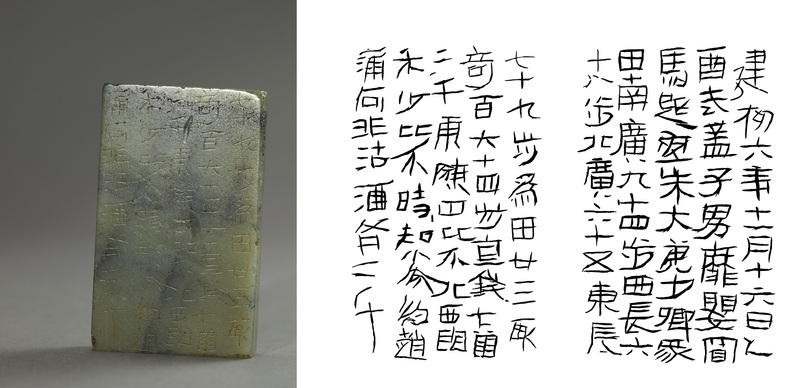 建初六年十一月十六日乙
酉武孟子男靡嬰買
馬熙宜朱大弟少卿冢
田南廣九十四步西長六
十八步北廣六十五東長
七十九步爲田廿三畝
奇百六十四步直錢十萬
二千東陳田比介北西南
朱少比介時知券約趙
滿何非沽酒各二千